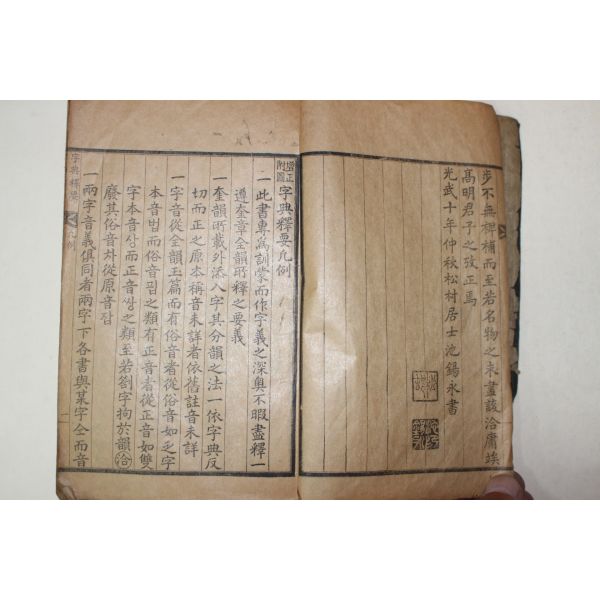 步不無裨補而至若名物之未盡該洽庸竢
高明君子之攷正焉
光武十年仲秋松村居士池錫永書
增正附圖 字典釋要凡例
一此書專爲訓蒙而作字義之深奧不暇盡釋一
遵奎章全韻所釋之要義
一奎韻所載外添入字其分韻之法一依字典反
切而正之原本稱音未詳者依舊註音未詳
一字音從全韻玉篇而有俗音者從俗音如乏字
本音법而俗音핍之類有正音者從正音如雙
字本音상而正音쌍之類至若劄字拘於韻洽
廢其俗音차從原音잡
一兩字音義俱同者兩字下各書與某字仝而音
字典釋要 凡例 一